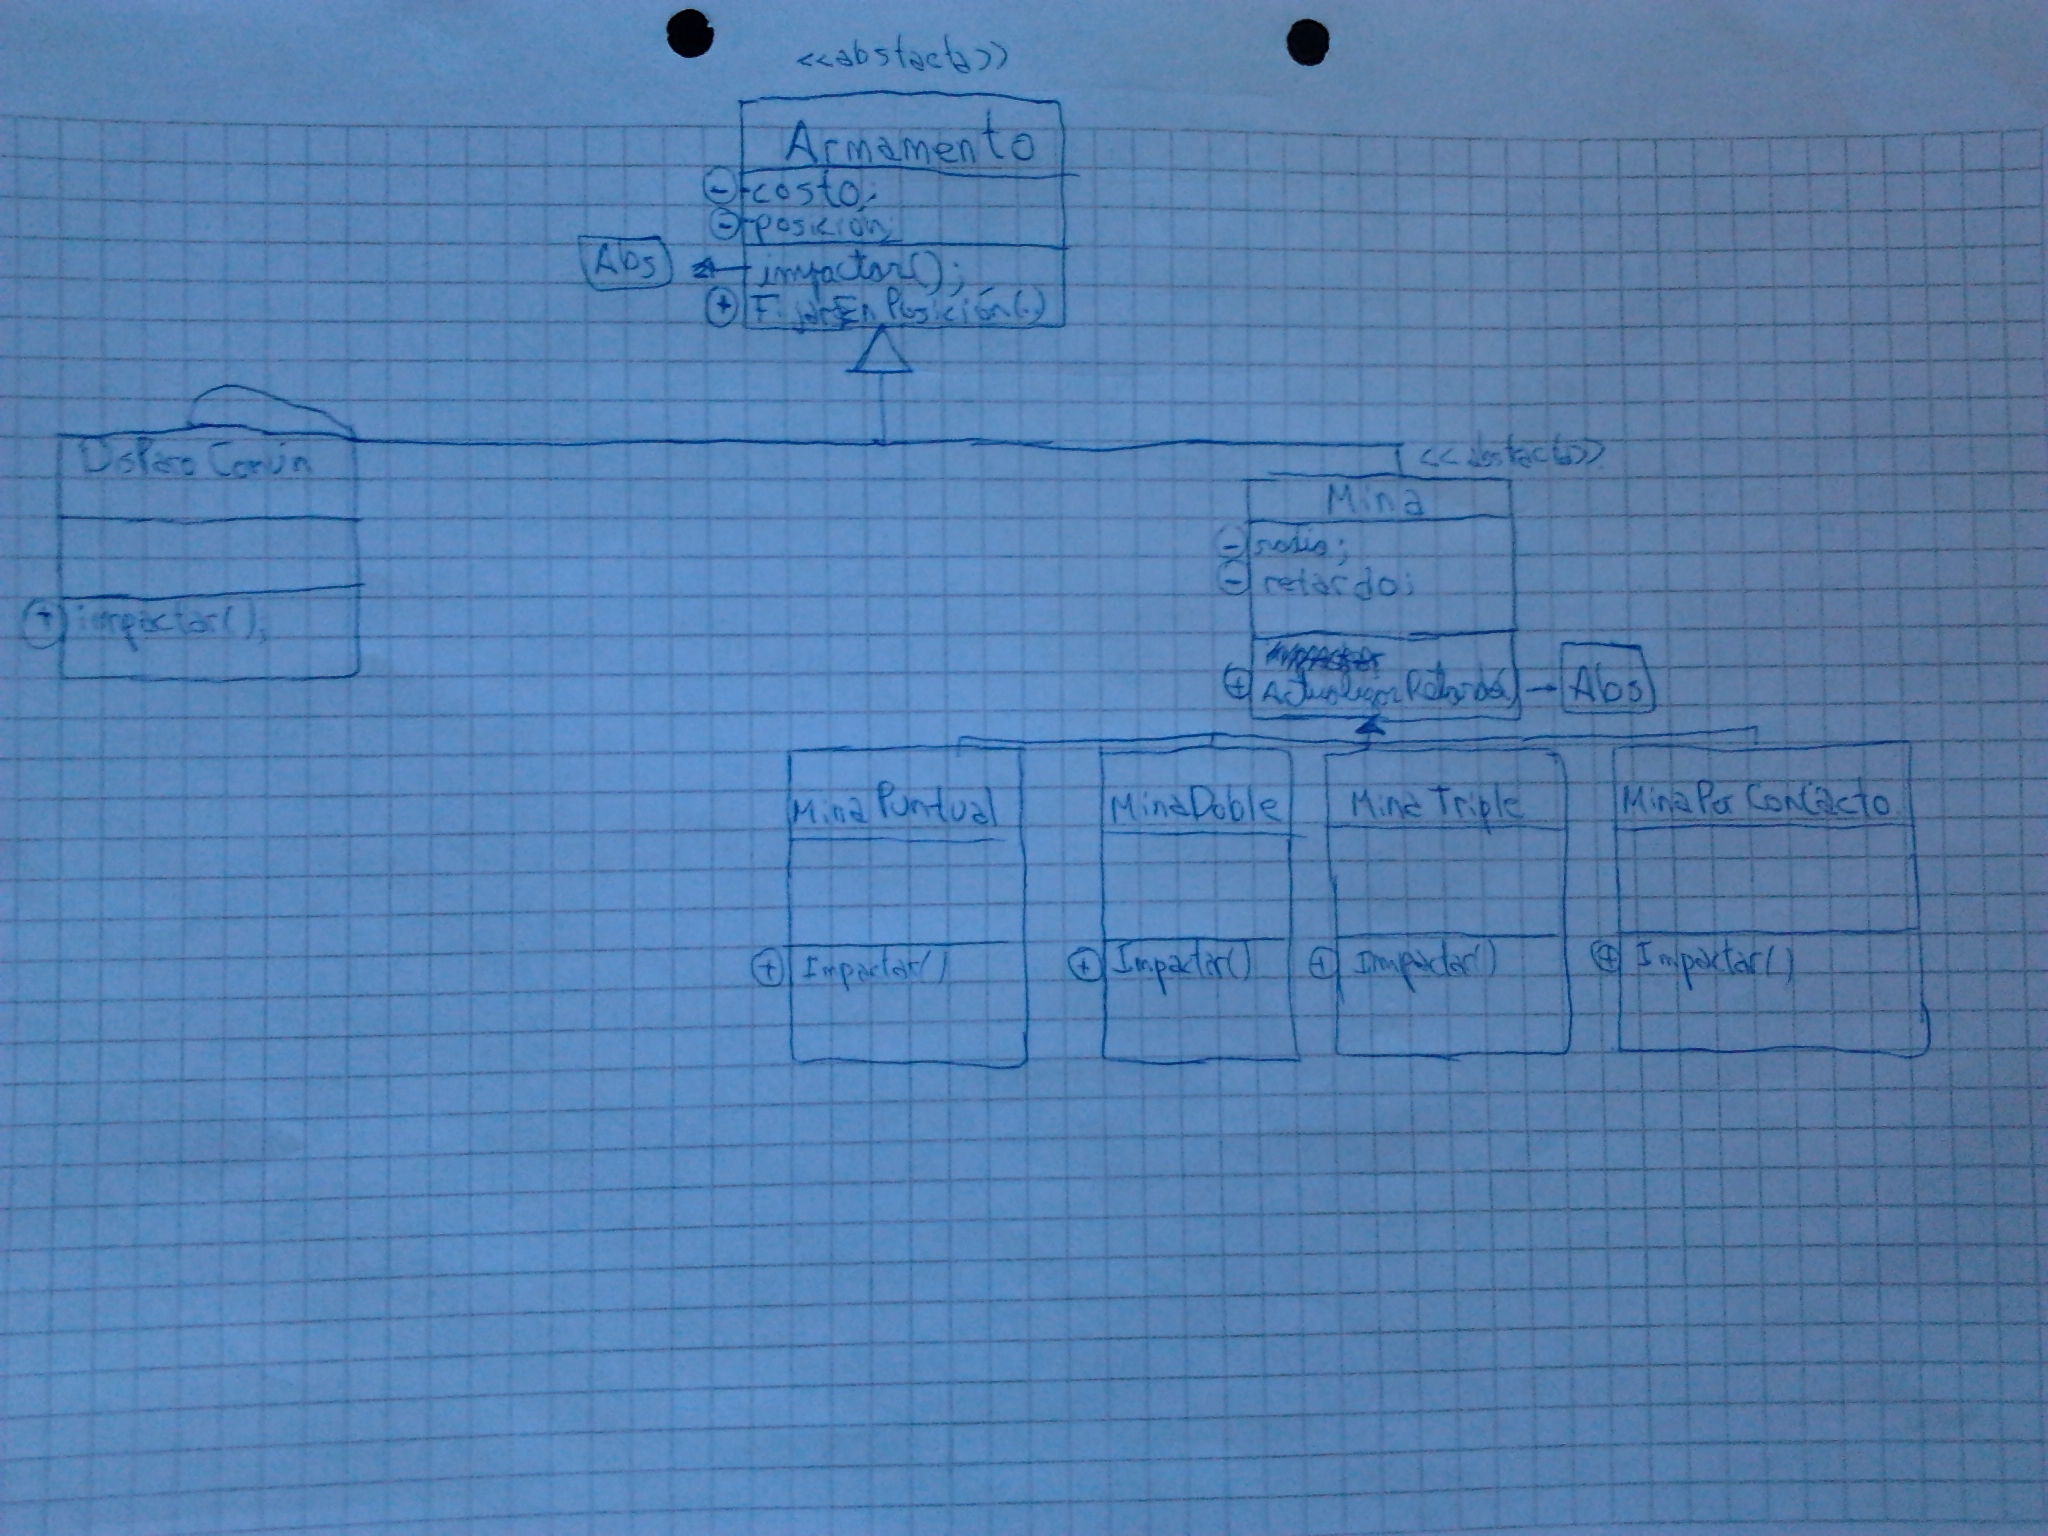 <<abstacta>>
Armamento
- costo;
- posición;
Abs
impactar();
+ FijarEnPosición()
Disparo Común
+ impactar();
<<abstacta>>
Mina
- radio;
- retardo;
+ Actualizar Retardo()
Abs
Mina Puntual
+ Impactar()
MinaDoble
+ Impactar()
Mina Triple
+ Impactar()
MinaPor Contacto
+ Impactar()